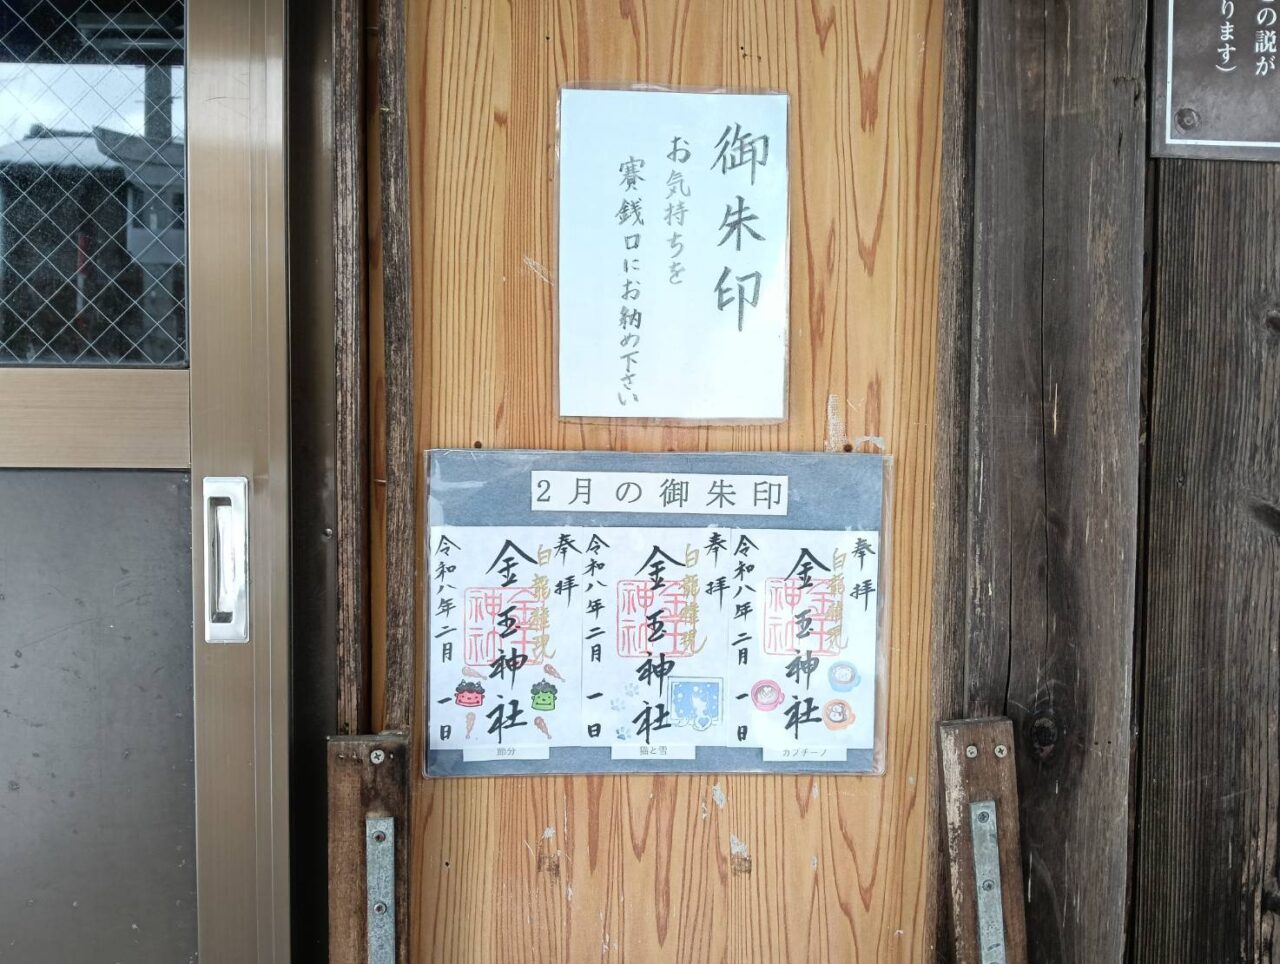 御朱印
お気持ちを
賽銭口にお納め下さい
この説が
ります）
2月の御朱印
奉拝
白龍雄現
金玉神社
金玉神社
令和八年二月一日
節分
奉拝
白龍雄現
金玉神社
金玉神社
令和八年二月一日
猫と雪
奉拝
白龍雄現
金玉神社
金玉神社
令和八年二月一日
カプチーノ